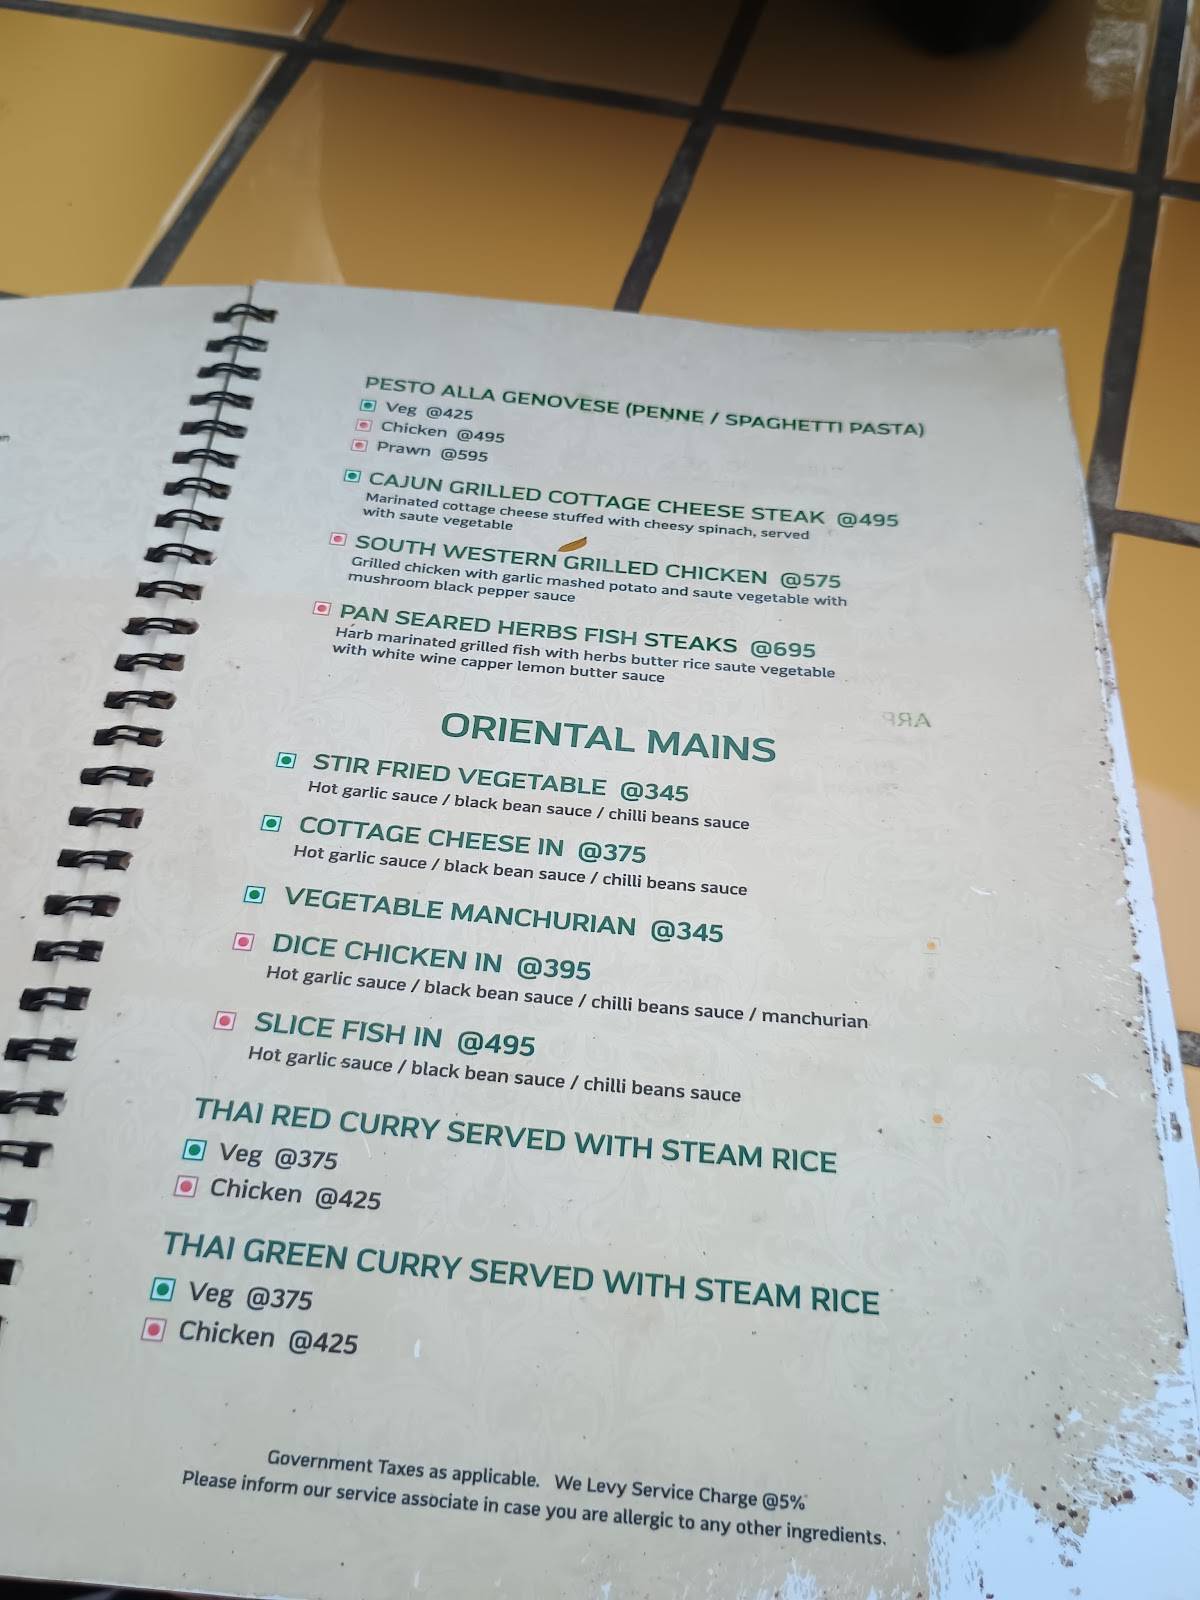 PESTO ALLA GENOVESE (PENNE / SPAGHETTI PASTA)
Veg @425
Chicken @495
Prawn @595
CAJUN GRILLED COTTAGE CHEESE STEAK @495
Marinated cottage cheese stuffed with cheesy spinach, served
with saute vegetable
SOUTH WESTERN GRILLED CHICKEN @575
Grilled chicken with garlic mashed potato and saute vegetable with
mushroom black pepper sauce
PAN SEARED HERBS FISH STEAKS @695
Harb marinated grilled fish with herbs butter rice saute vegetable
with white wine capper lemon butter sauce
ORIENTAL MAINS
STIR FRIED VEGETABLE @345
Hot garlic sauce / black bean sauce / chilli beans sauce
COTTAGE CHEESE IN @375
Hot garlic sauce / black bean sauce / chilli beans sauce
VEGETABLE MANCHURIAN @345
DICE CHICKEN IN @395
Hot garlic sauce / black bean sauce / chilli beans sauce / manchurian
SLICE FISH IN @495
Hot garlic sauce / black bean sauce / chilli beans sauce
THAI RED CURRY SERVED WITH STEAM RICE
Veg @375
Chicken @425
THAI GREEN CURRY SERVED WITH STEAM RICE
Veg @375
Chicken @425
Government Taxes as applicable. We Levy Service Charge @5%
Please inform our service associate in case you are allergic to any other ingredients.